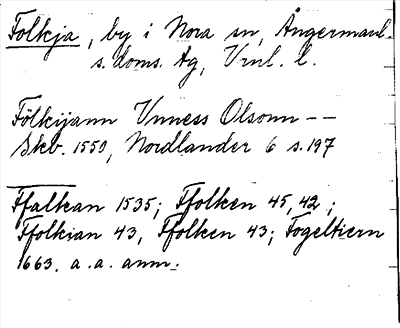 Folkja, by i Nora sn, Ångermanl.
s. doms. tg, Vrnl. l.
Fölkijann Unness Olsonn --
Skb. 1550, Nordlander 6 s. 197
Ffalkan 1535; Ffolken 45, 42;
Ffolkian 43, Ffolken 43; Fogeltiern
1663. a. a. anm.